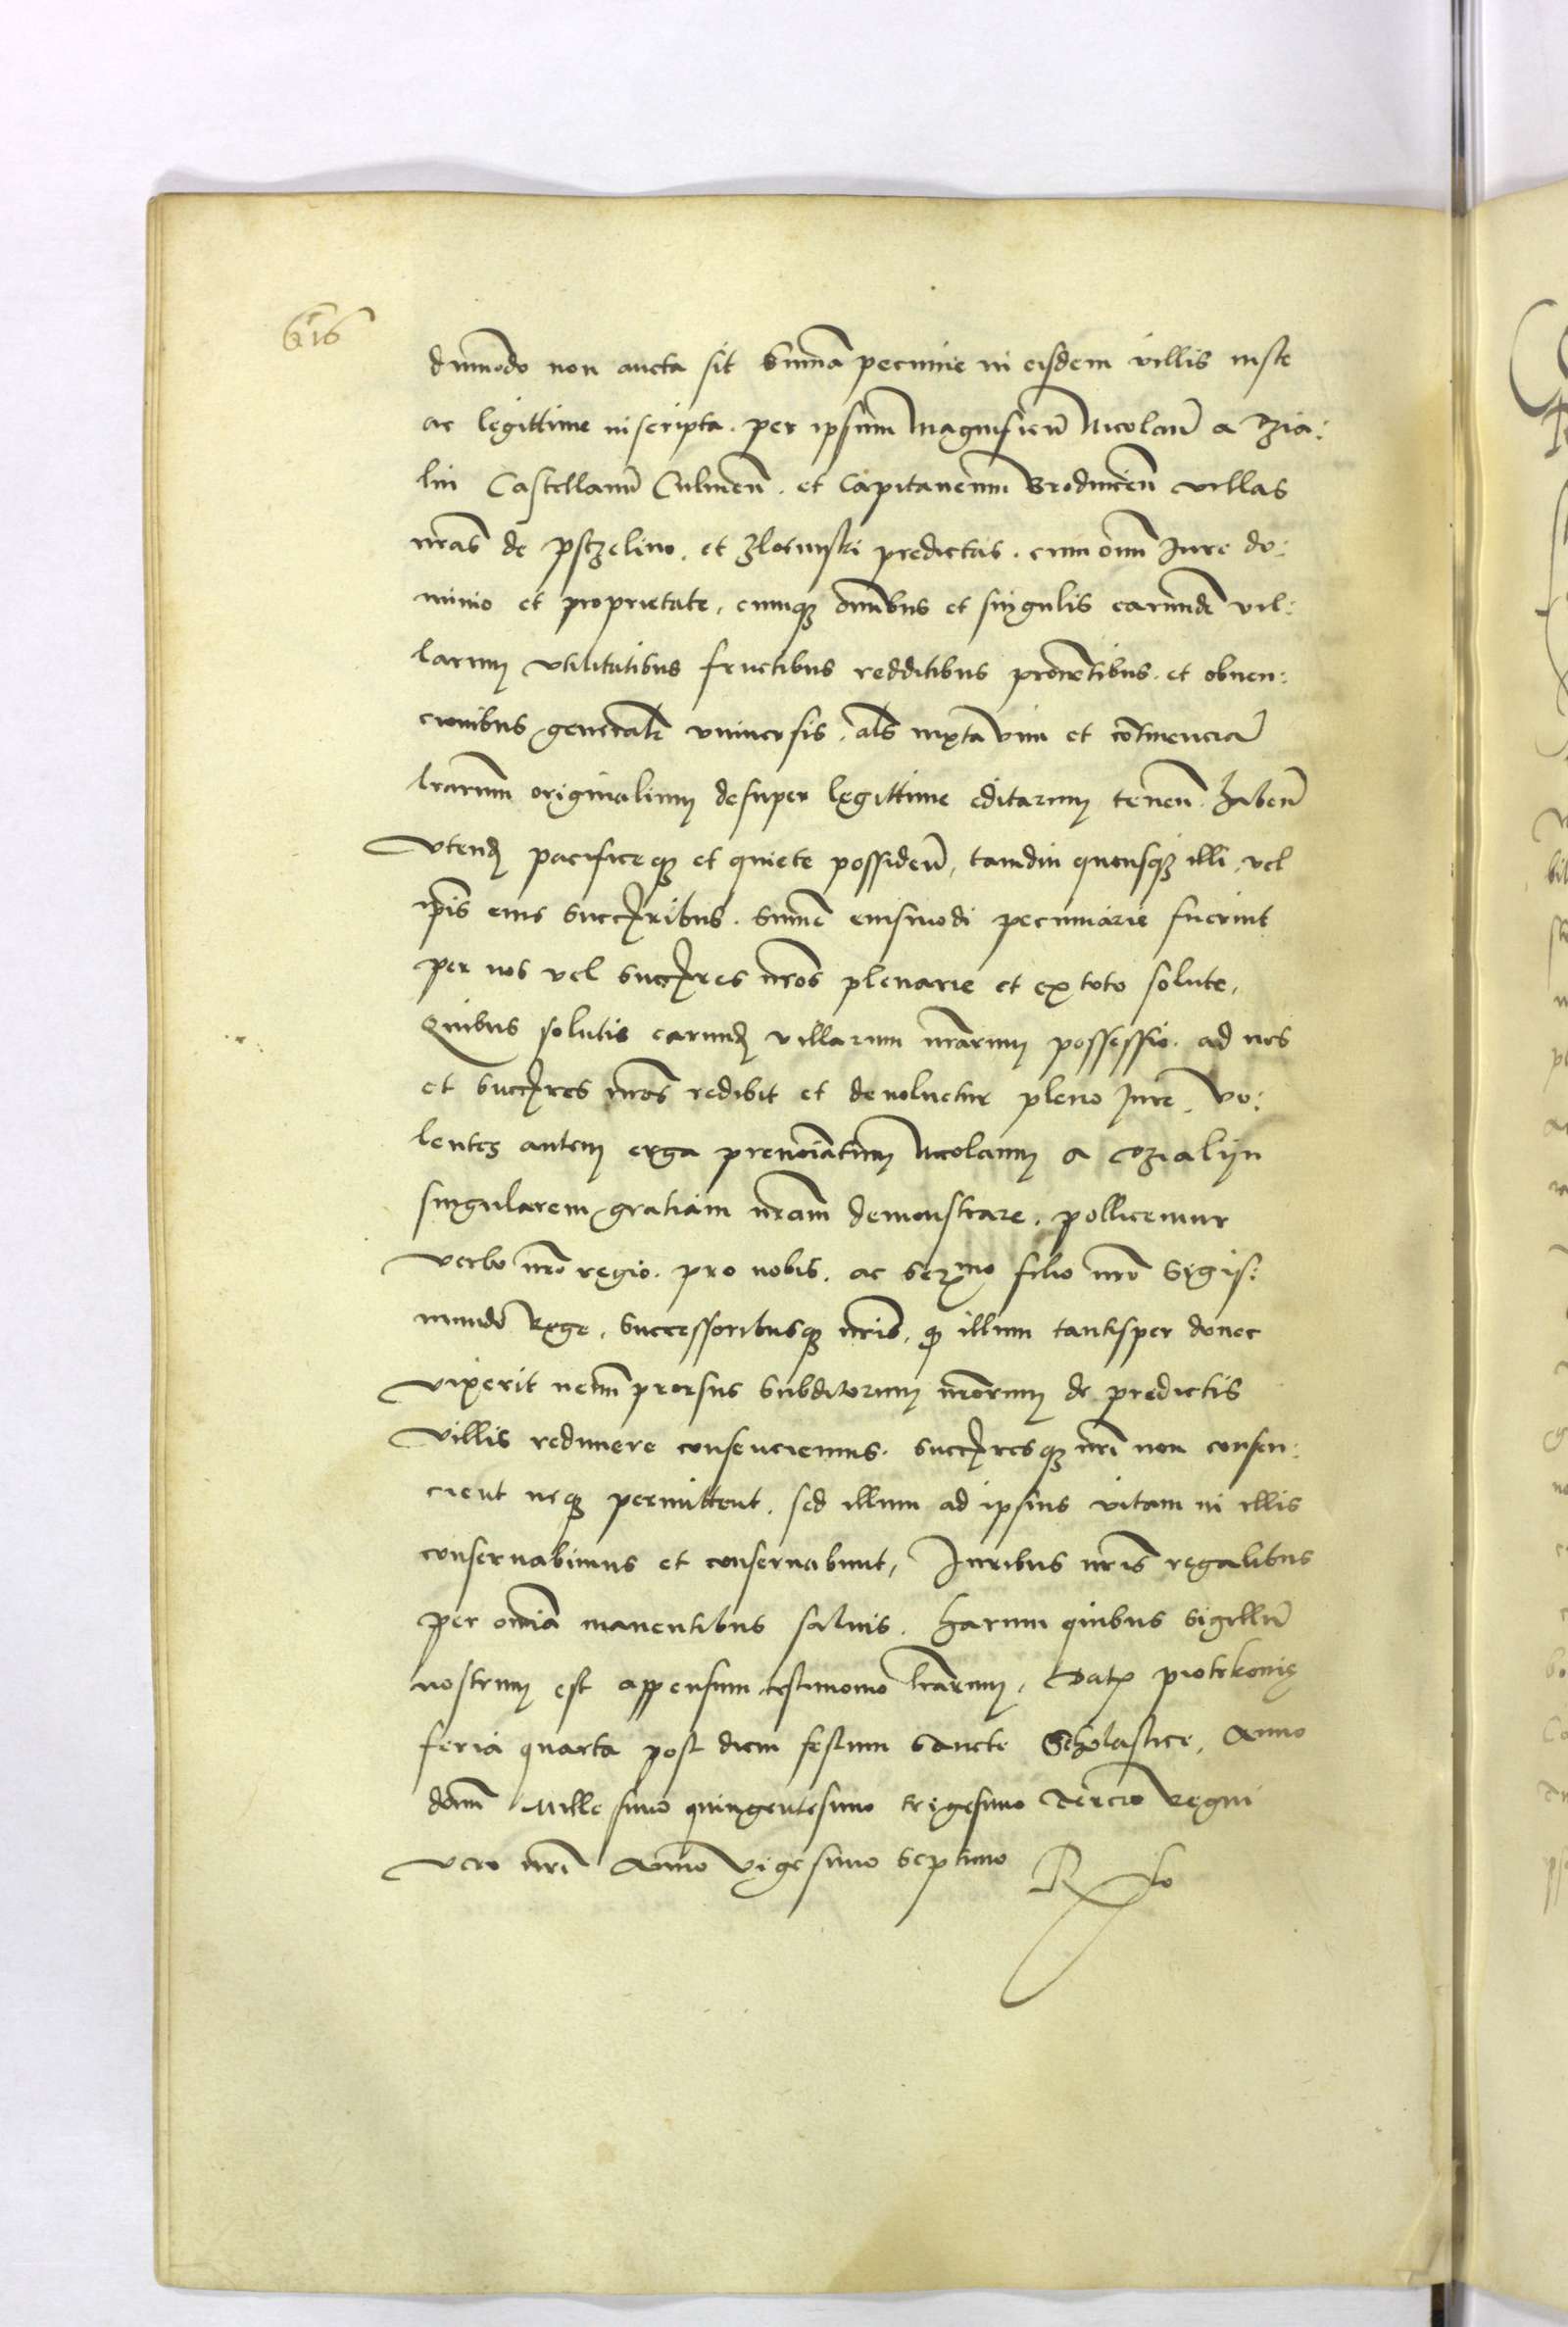 616
dummodo non aucta sit Summa pecunie in eisdem villis iuste
ac legittime inscripta. per ipsum Magnificu̅ Nicolau̅ a Dzia:
lin Castellanu̅ Culmen̅. et Capitaneum Brodnicen̅ villas
nr̅as de pszczelino. et Zlotniski predictas. cum omni Jure do:
minio et proprietate, cumq̷ omnibus et singulis earunde̅ vil:
larum vtilitatibus fructibus redditibus prouentibus. et obuen:
cionibus generaliter vniuersis. al̅s iuxta vim et continencia̅
l̅rarum originalium desuper legittime editarum tenen̅. haben̅
vtend̅ pacificeq̷ et quiete possiden̅, tamdiu quousq̷ illi, vel
ip̅is eius Succ̅oribus. Summe eiusmodi pecuniarie fuerint
per nos vel Succ̅ores nr̅os plenarie et ex toto solute,
Quibus solutis earund̅ villarum nr̅arum possessio. ad nos
et Succ̅ores nr̅os redibit et deuoluetur pleno Jure. Vo:
lentes autem erga preno̅iatum Nicolaum a Dzialijn
singularem gratiam nr̅am demonstrare. pollicemur
verbo nr̅o regio. pro nobis. ac Ser^mo filio nr̅o Sigis:
mundo Rege. Successoribusq̷ nr̅is, q̷ illum tantisper donec
vixerit nemini prorsus Subditorum nr̅orum de predictis
villis redimere consenciemus. Succ̅oresq̷ nr̅i non consen:
cient neq̷ permittent. sed illum ad ipsius vitam in illis
conseruabimus et conseruabunt, Juribus nr̅is regalibus
per om̅ia manentibus saluis. Harum quibus Sigillu̅
nostrum est appensum testimonio l̅rarum, Dat̅ piotrkouie
feria quarta post diem festum Sancte Scholastice, Anno
domini Millesimo quingentesimo trigesimo Tercio Regni
vero nr̅i Anno Vigesimo Septimo